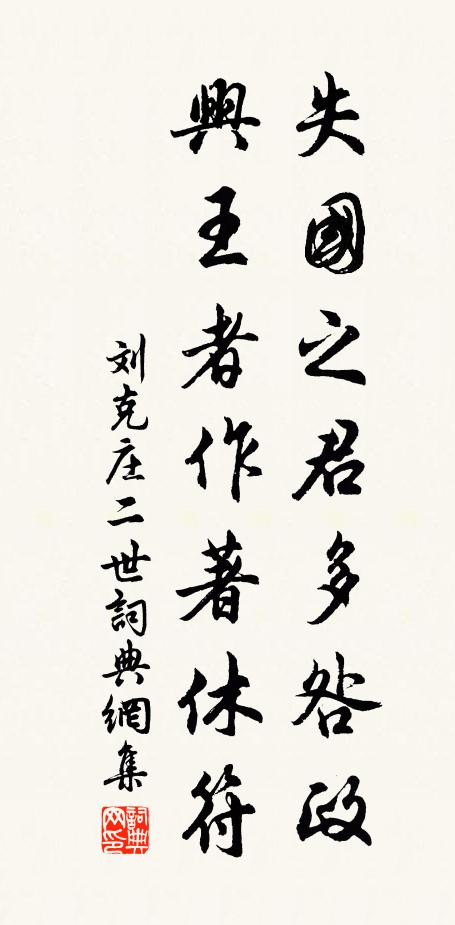 失國之君多咎政
興王者作著休符
刘克庄二世詞典網集
詞典网印